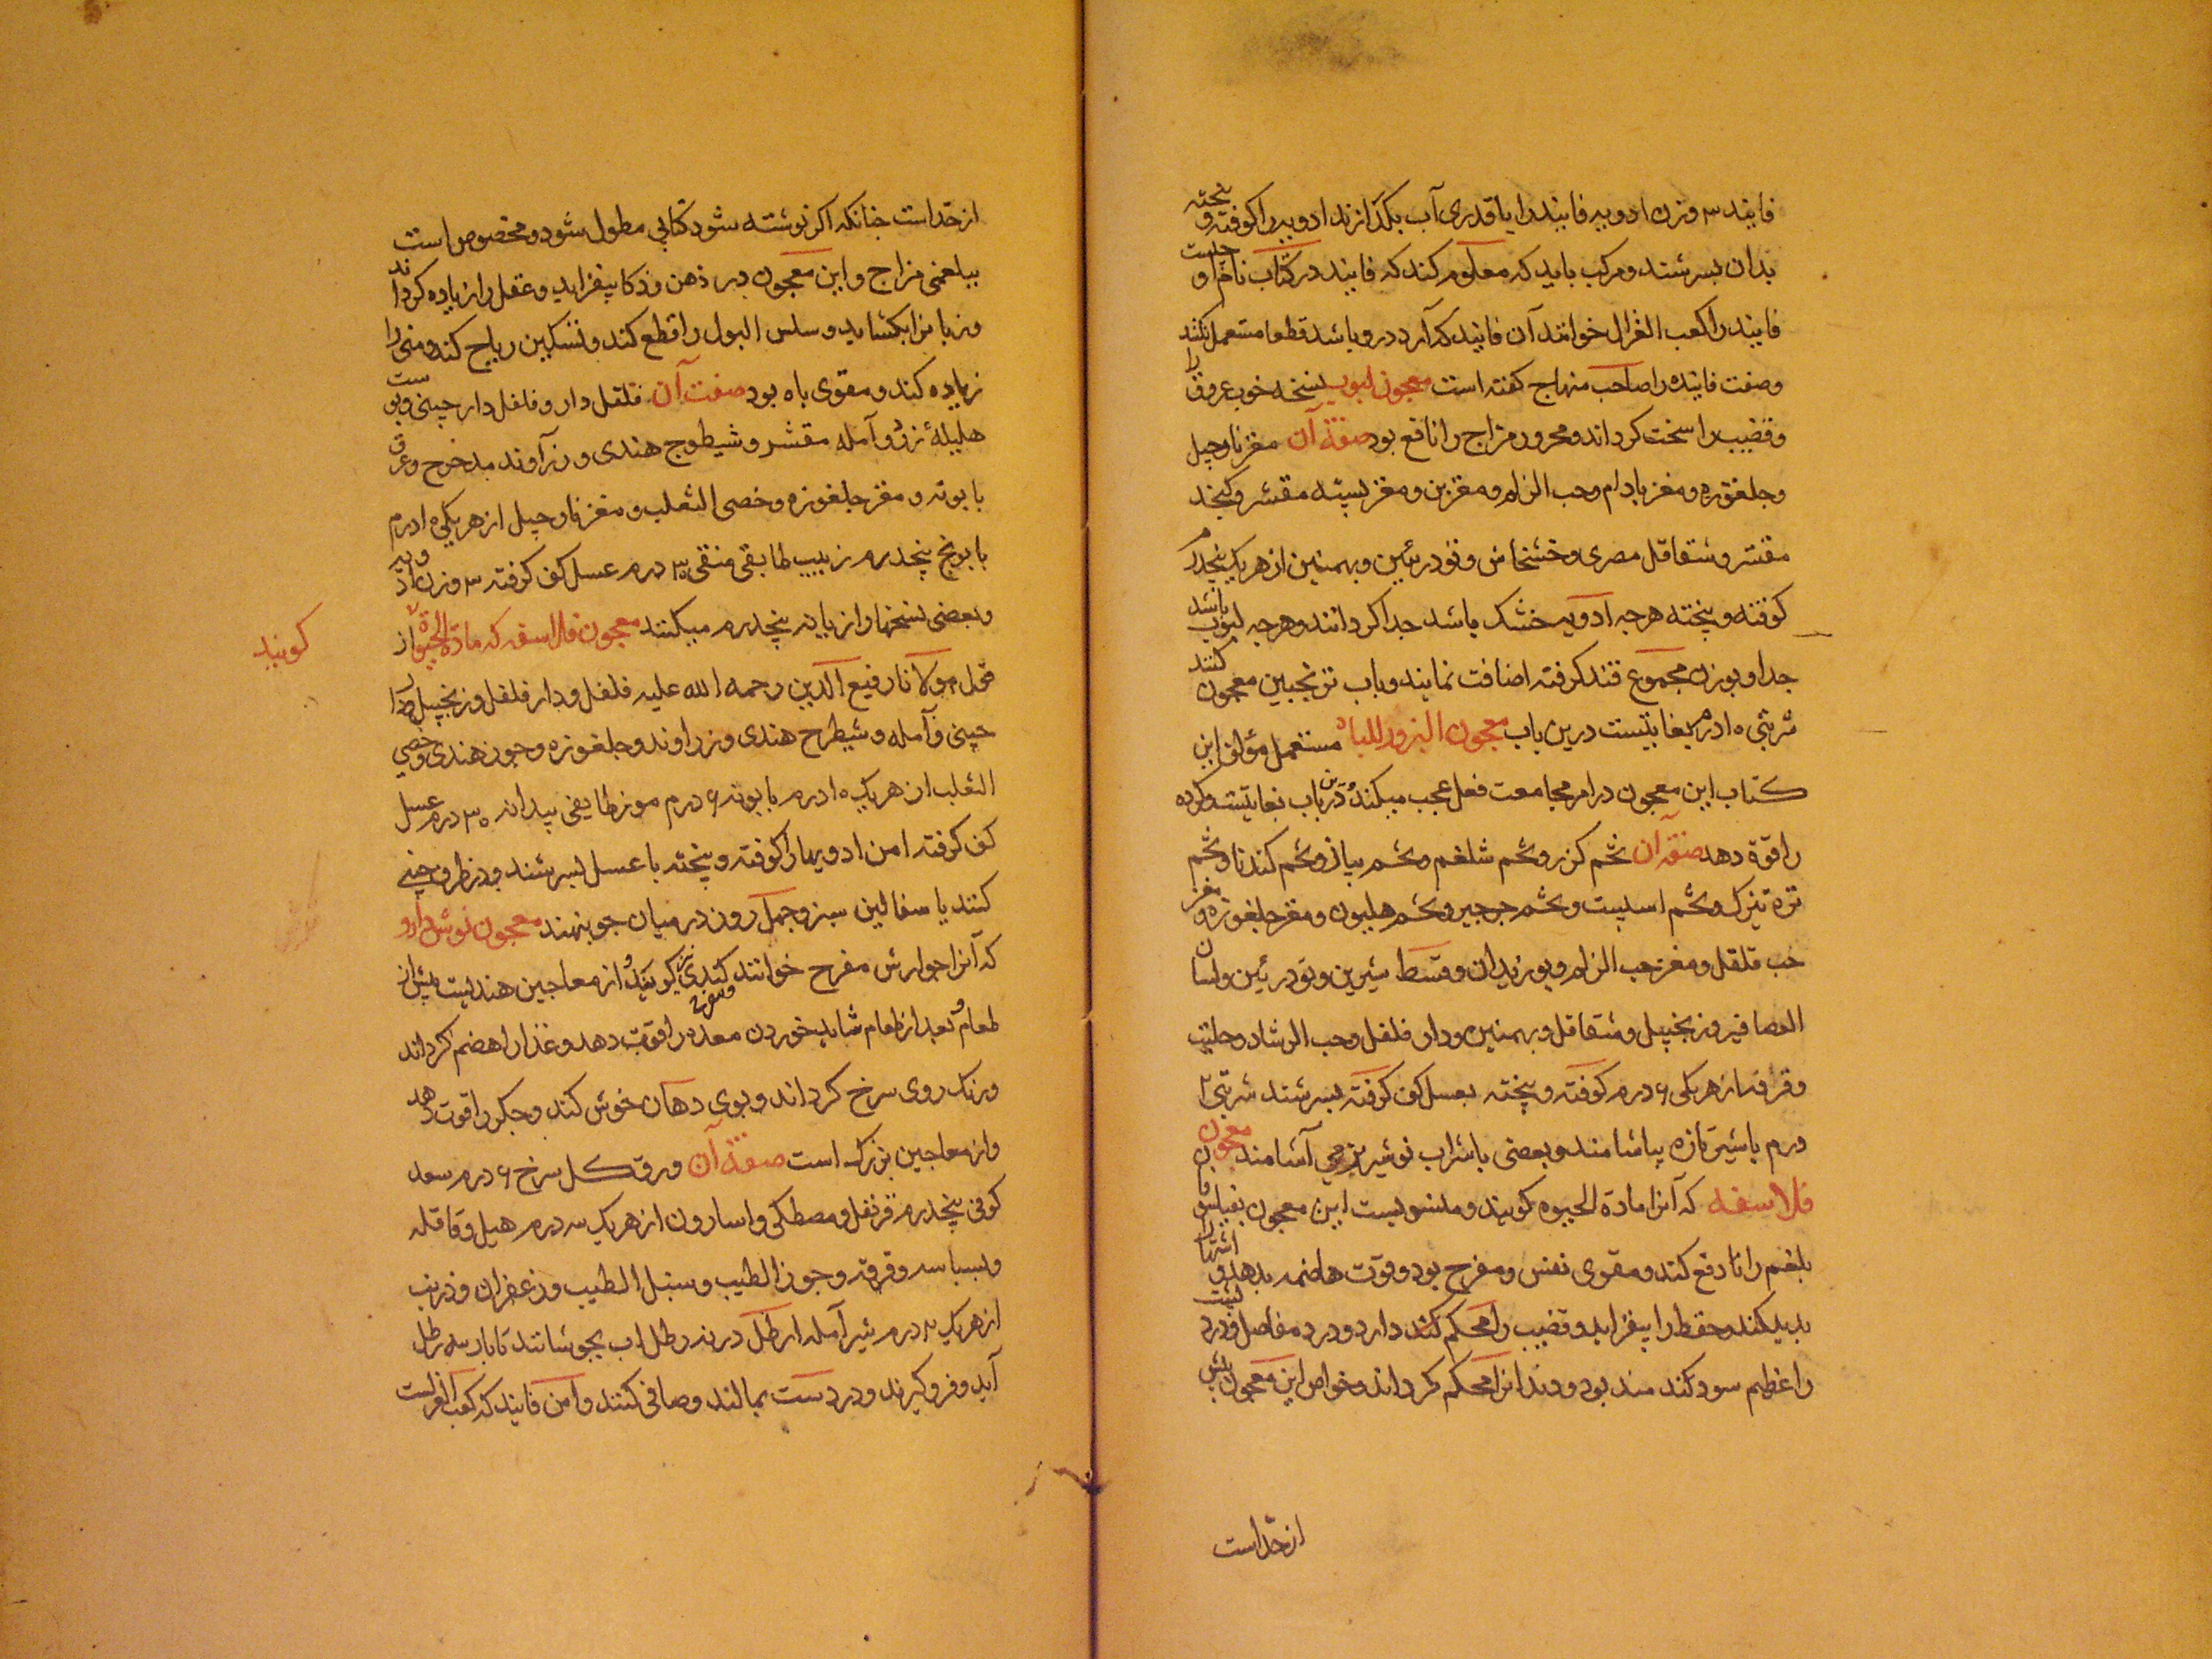 فانید ۳ وزن ادویه فانید را با قدری آب بکدازند ادویه را کوفته و پخته
بدان بسرشند ومرکب باید که معلوم کند که فانید در کتاب نام او
فانید را کعب الغزال خوانند آن فانید که آرد درو باشد قطعا مستعمل نکنند
وصفت فانیده را صاحب منهاج کفته است معجون لبوب نسخه خوب عروق را
وقضیب را سخت کرداند ومحرور مزاج را نافع بود صفة آن مغز نارجیل
وجلغوزه ومغز بادام وحب الزلم ومغز بن ومغز پسته مقشر وکنجد
مقشر وشقاقل مصری وخشخاش وتودریین وبهمنین از هر یک پنجدرم
کوفته وپخته هرجه ادویه خشک باشد جدا کردانند وهرجه لبوب باشد
جدا وبوزن مجموع قند کرفته اضافت نمایند وباب ترنجبین معجون کنند
شربتی ۱۰ درم بغایتست درین باب معجون البزور للباه مستعمل مؤلف این
کتاب این معجون در امر مجامعت فعل عجب میکند ودرین باب بغایتست وکرده
را قوة دهد صفة آن تخم کزر وتخم شلغم وتخم پیاز وتخم کندنا وتخم
تره تیزک وتخم اسپست وتخم جرجیر وتخم هلیون ومغز جلغوزه ومغز
حب قلقل ومغز حب الزلم وبوزیدان وقسط شیرین وتودریین ولسان
العصافیر وزنجبیل وشقاقل وبهمنین ودار فلفل وحب الرشاد وحلتیت
وقرفه از هر یکی ۶ درم کوفته وپخته بعسل کف کرفته بسرشند شربتی ۲
درم باشیر تازه بیاشامند وبعضی باشراب نوشیرین می آشامند معجون
فلاسفه که آنرا مادة الحیوه کویند ومنسوبست این معجون بفیلسوفان
بلغم را نا دفع کند ومقوی نفس ومفرح بود وقوت هاضمه بدهد واشتها را
بدید کند وحفظ را بیفزاید وقضیب را محکم کند دارد ودرد مفاصل ودرد پشت
را عظیم سود کند مند بود ودندانرا محکم کرداند وخواص این معجون بیش
از حد است
از حد است جنانکه اکر نوشته شود کتابی مطول شود ومخصوص است
ببلغمی مزاج واین معجون در ذهن وذکا بیفزاید وعقل را زیاده کرداند
وزبانرا بکشاید وسلس البول را قطع کند وتسکین ریاح کند ومنی را
زیاده کند ومقوی باه بود صفت آن فلفل دار وفلفل دار چینی وپوست
هلیلۀ زرد وآمله مقشر وشیطرج هندی وزرآوند مدحرج وعرق
بابونه ومغز جلغوزه وخصی الثعلب ومغز نارجیل از هر یکی ۱۰ درم
بابونج پنجدرم زبیب طایفی منقی ۳۰ درم عسل کف کرفته ۳ وزن ادویه
وبعضی نسخها رازیانه پنجدرم میکنند معجون فلاسفه که مادة الحیوة از
کویند
قول مولانا رفیع الدین رحمه الله علیه فلفل ودار فلفل وزنجبیل ودار
جینی وآمله وشیطرج هندی وزراوند وجلغوزه وجوز هندی وخصی
الثعلب از هر یک ۱۰ درم بابونه ۶ درم مویز طایفی بیدانه ۳۰ درم عسل
کف کرفته ۱ من ادویها را کوفته وپخته با عسل بسرشند ودر ظرف جینی
کنند یا سفالین سبز وچهل روز در میان جو بنهند معجون نوش دارو
که آنرا جوارش مفرح خوانند کندی نیز کویند واز معاجین هندیست پیش از
طعام وبعد از طعام شاید خوردن معده را قوت دهد وغذا را هضم کرداند
ورنک روی سرخ کرداند وبوی دهان خوش کند وجکر را قوت دهد
واز معاجین بزرک است صفة آن ورق کل سرخ ۶ درم سعد
کوفی پنجدرم قرنفل ومصطکی واسارون از هر یک سه درم هیل وقاقله
وبسباسه وقرفه وجوز الطیب وسنبل الطیب وزعفران وزرنب
از هر یک ۲ درم شیر آمله ۱ رطل در نه رطل اب بجوشانند تا باز سه رطل
آید وفرو کیرند ودر دست بمالند وصافی کنند و۱ من فانید که کعب الغزالست